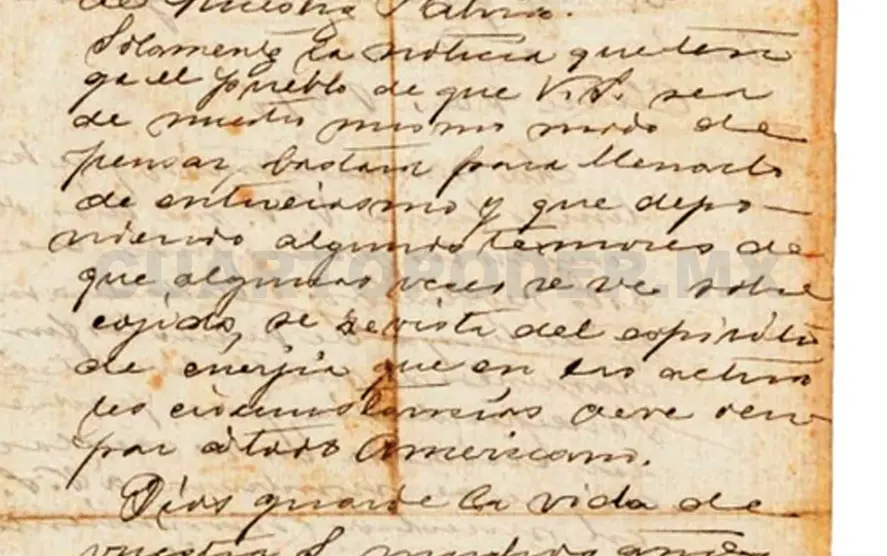 de Nuestra Patria.
Solamente la noticia que ten
ga el pueblo de que V.S. sea
de nuestro mismo modo de
pensar, bastara para llenarlo
de entuciasmo y que depo-
niendo algunos temores de
que algunas veces se ve sobre
cojido, se revista del espiritu
de enerjia que en las actua
les circunstancias deve ocu
par á todo Americano.
Dios guarde la vida de
vuestra S. muchos años
CUARTOPODER.MX